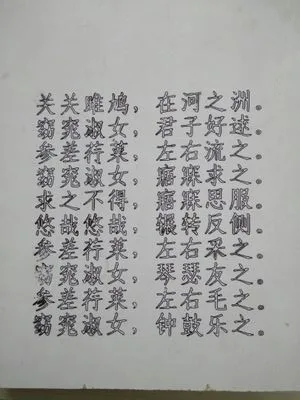 关关雎鸠，在河之洲。
窈窕淑女，君子好逑。
参差荇菜，左右流之。
窈窕淑女，寤寐求之。
求之不得，寤寐思服。
悠哉悠哉，辗转反侧。
参差荇菜，左右采之。
窈窕淑女，琴瑟友之。
参差荇菜，左右毛之。
窈窕淑女，钟鼓乐之。